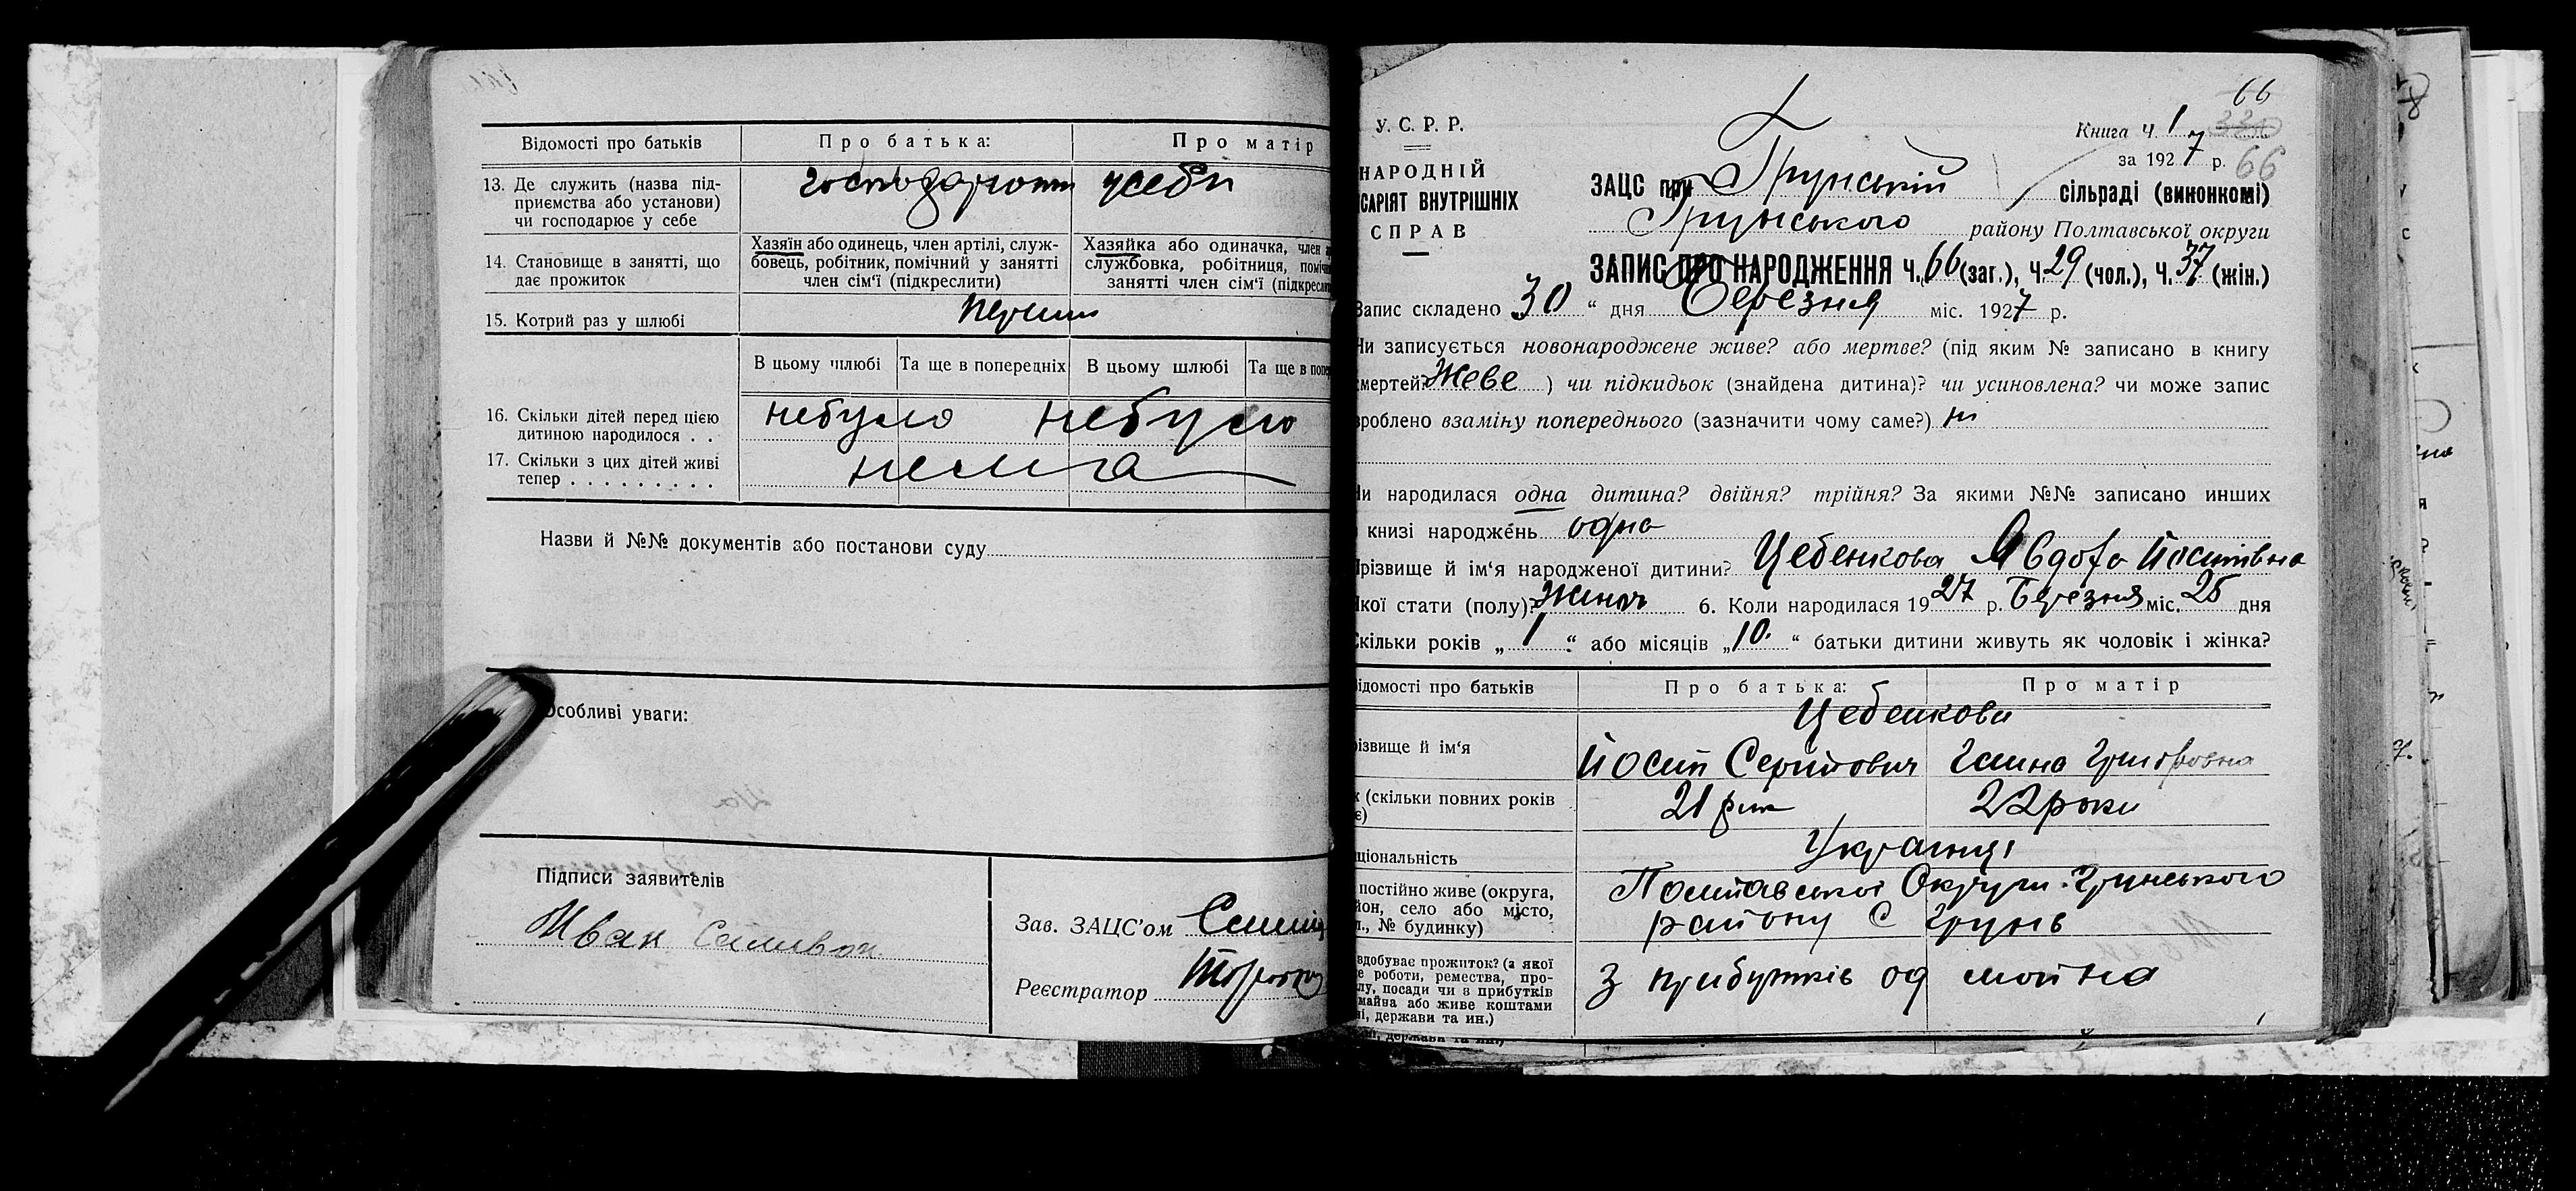 Відомості про батьків
Про батька:
Про матір
13. Де служить (назва під-
приємства або установи)
чи господарює у себе
господарюють усеби
14. Становище в занятті, що
дає прожиток
Хазяїн або одинець, член артілі, служ-
бовець, робітник, помічний у занятті
член сім'ї (підкреслити)
Хазяйка або одиначка, член
службовка, робітниця,
занятті член сім'ї
15. Котрий раз у шлюбі
В цьому шлюбі
Та ще в попередніх
В цьому шлюбі
Та ще в
16. Скільки дітей перед цією
дитиною народилося . .
небуло небуло
17. Скільки з цих дітей живі
тепер . . . . . . . . .
нема
Назви й №№ документів або постанови суду
Особливі уваги:
Підписи заявителів
Иван
Зав. ЗАЦС'ом
Реєстратор
66
У. С. Р. Р.
Книга Ч. 1 330
за 1927 р. 66
НАРОДНІЙ
САРІЯТ ВНУТРІШНІХ
СПРАВ
ЗАЦС при Грунській сільраді (виконкомі)
Грунського району Полтавської округи
ЗАПИС ПРО НАРОДЖЕННЯ Ч. 66 (заг.), Ч. 29 (чол.), Ч. 37 (жін.)
Запис складено 30 " дня Березня міс. 1927 р.
Чи записується новонароджене живе? або мертве? (під яким № записано в книгу
смертей? Живе ) чи підкидьок (знайдена дитина)? чи усиновлена? чи може запис
зроблено взаміну попереднього (зазначити чому саме?) ні
Чи народилася одна дитина? двійня? трійня? За якими №№ записано инших
книзі народжень одна
Прізвище й ім'я народженої дитини? Цебенкова Явдоха Йосипівна
Якої стати (полу)? Жіноч 6. Коли народилася 1927 р. Березня міс. 25 дня
Скільки років „ 1 “ або місяців „ 10. “ батьки дитини живуть як чоловік і жінка?
Відомості про батьків
Про батька:
Про матір
Цебенкови
різвище й ім'я
Йосип Ганна
(скільки повних років
є)
21 рік 22 роки
ціональність
Українці
постійно живе (округа,
йон, село або місто,
л., № будинку)
Полтавської Округи Грунського
району С Грунь
здобуває прожиток? (з якої
е роботи, ремества, про-
лу, посади чи з прибутків
майна або живе коштами
ні, держави та ин.)
З прибутків од майна